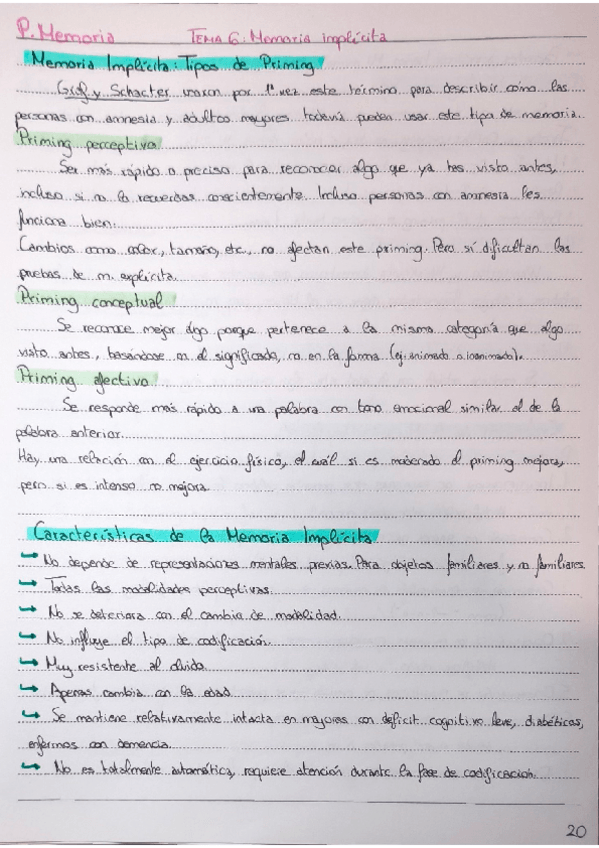 P. Memoria TEMA 6: Memoria implícita
Memoria Implícita: Tipos de Priming
Graf y Schacter usaron por 1ª vez este término para describir cómo las
personas con amnesia y adultos mayores todavía pueden usar este tipo de memoria.
Priming perceptivo
Ser más rápido o preciso para reconocer algo que ya has visto antes,
incluso si no lo recuerdas conscientemente. Incluso personas con amnesia les
funciona bien.
Cambios como color, tamaño, etc, no afectan este priming. Pero sí dificultan las
pruebas de m. explícita.
Priming conceptual
Se reconoce mejor algo porque pertenece a la misma categoría que algo
visto antes, basándose en el significado, no en la forma (ej: animado o inanimado).
Priming afectivo
Se responde más rápido a una palabra con tono emocional similar al de la
palabra anterior.
Hay una relación con el ejercicio físico, el cuál si es moderado el priming mejora,
pero si es intenso no mejora.
Características de la Memoria Implícita
→ No depende de representaciones mentales previas. Para objetos familiares y no familiares.
→ Todas las modalidades perceptivas.
→ No se deteriora con el cambio de modalidad.
→ No influye el tipo de codificación.
→ Muy resistente al olvido.
→ Apenas cambia con la edad
→ Se mantiene relativamente intacta en mayores con deficit cognitivo leve, diabéticos,
enfermos con demencia.
→ No es totalmente automática, requiere atención durante la fase de codificación.
20